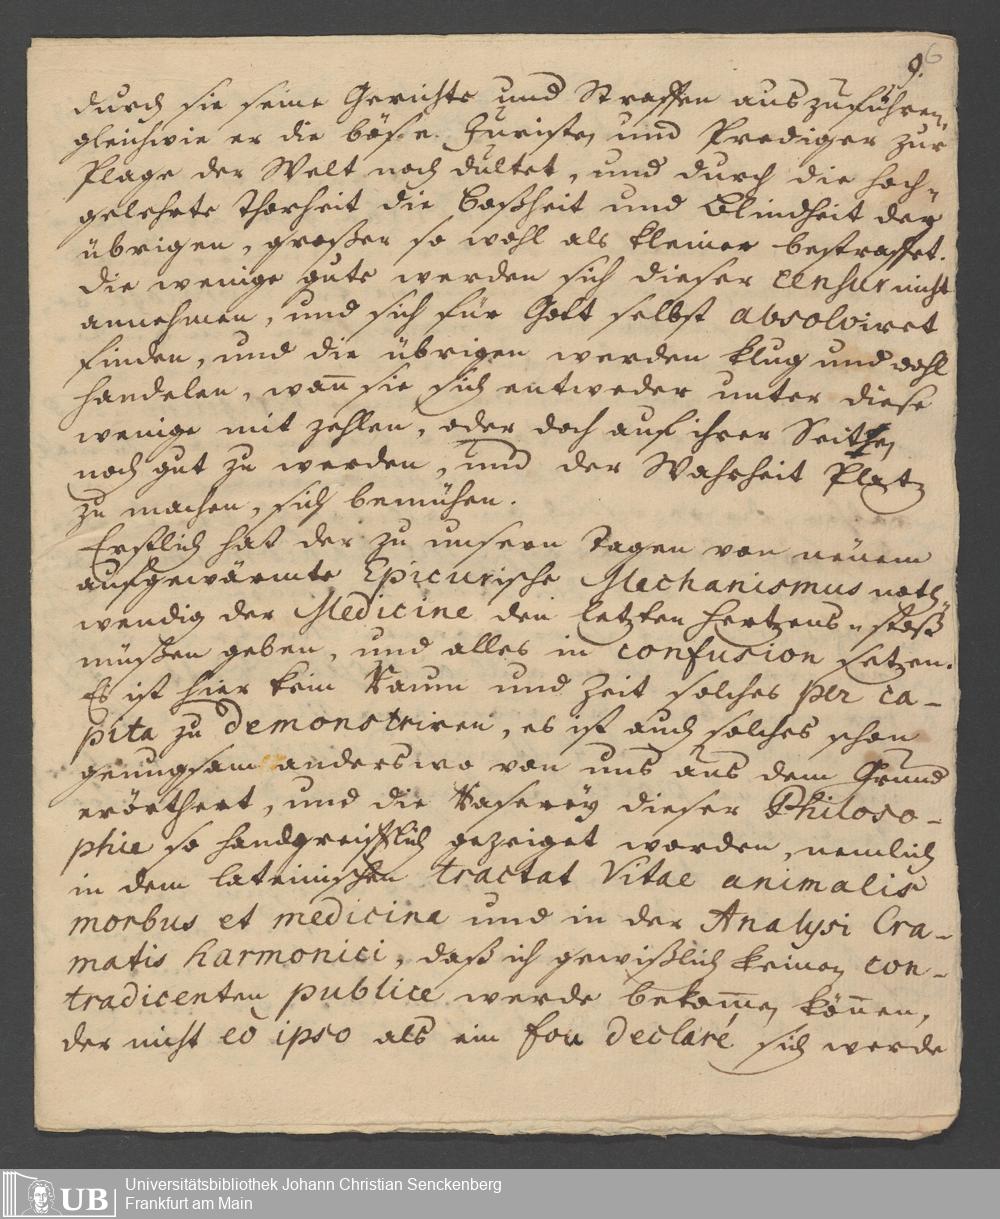 9. 6
durch sie seine Gerichte und Straffen auszuführen,
gleichwie er die böse Juristen und Prediger zur
Plage der Welt noch dultet, und durch die hoch-
gelehrte Thorheit die Boßheit und Blindheit der
übrigen, großer so wohl als kleiner bestraffet.
Die wenige gute werden sich dieser censur nicht
annehmen, und sich für Gott selbst absolviret
finden, und die übrigen werden klug und wohl
handelen, wan̄ sie sich entweder unter diese
wenige mit zehlen, oder doch auf ihrer Seithen
noch gut zu werden, und der Wahrheit Platz
zu machen, sich bemühen.
Erstlich hat der zu unsern Tagen von neüem
aufgewärmte Epicurische Mechanismus noth-
wendig der Medicine den letzten Hertzens-stoß
müßen geben, und alles in confusion setzen.
Es ist hier kein Raum und Zeit solches per ca-
pita zu demonstriren, es ist auch solches schon
genugsam anderswo von uns aus dem Grund
erörthert, und die Raserey dieser Philoso-
phie so handgreifflich gezeiget worden, nemlich
in dem lateinischen tractat Vitae animalis
morbus et medicina und in der Analysi Cra-
matis harmonici, daß ich gewißlich keinen con-
tradicenten publice werde bekom̄en kön̄en,
der nicht eo ipso als ein fou declaré sich werde
UB
Universitätsbibliothek Johann Christian Senckenberg
Frankfurt am Main